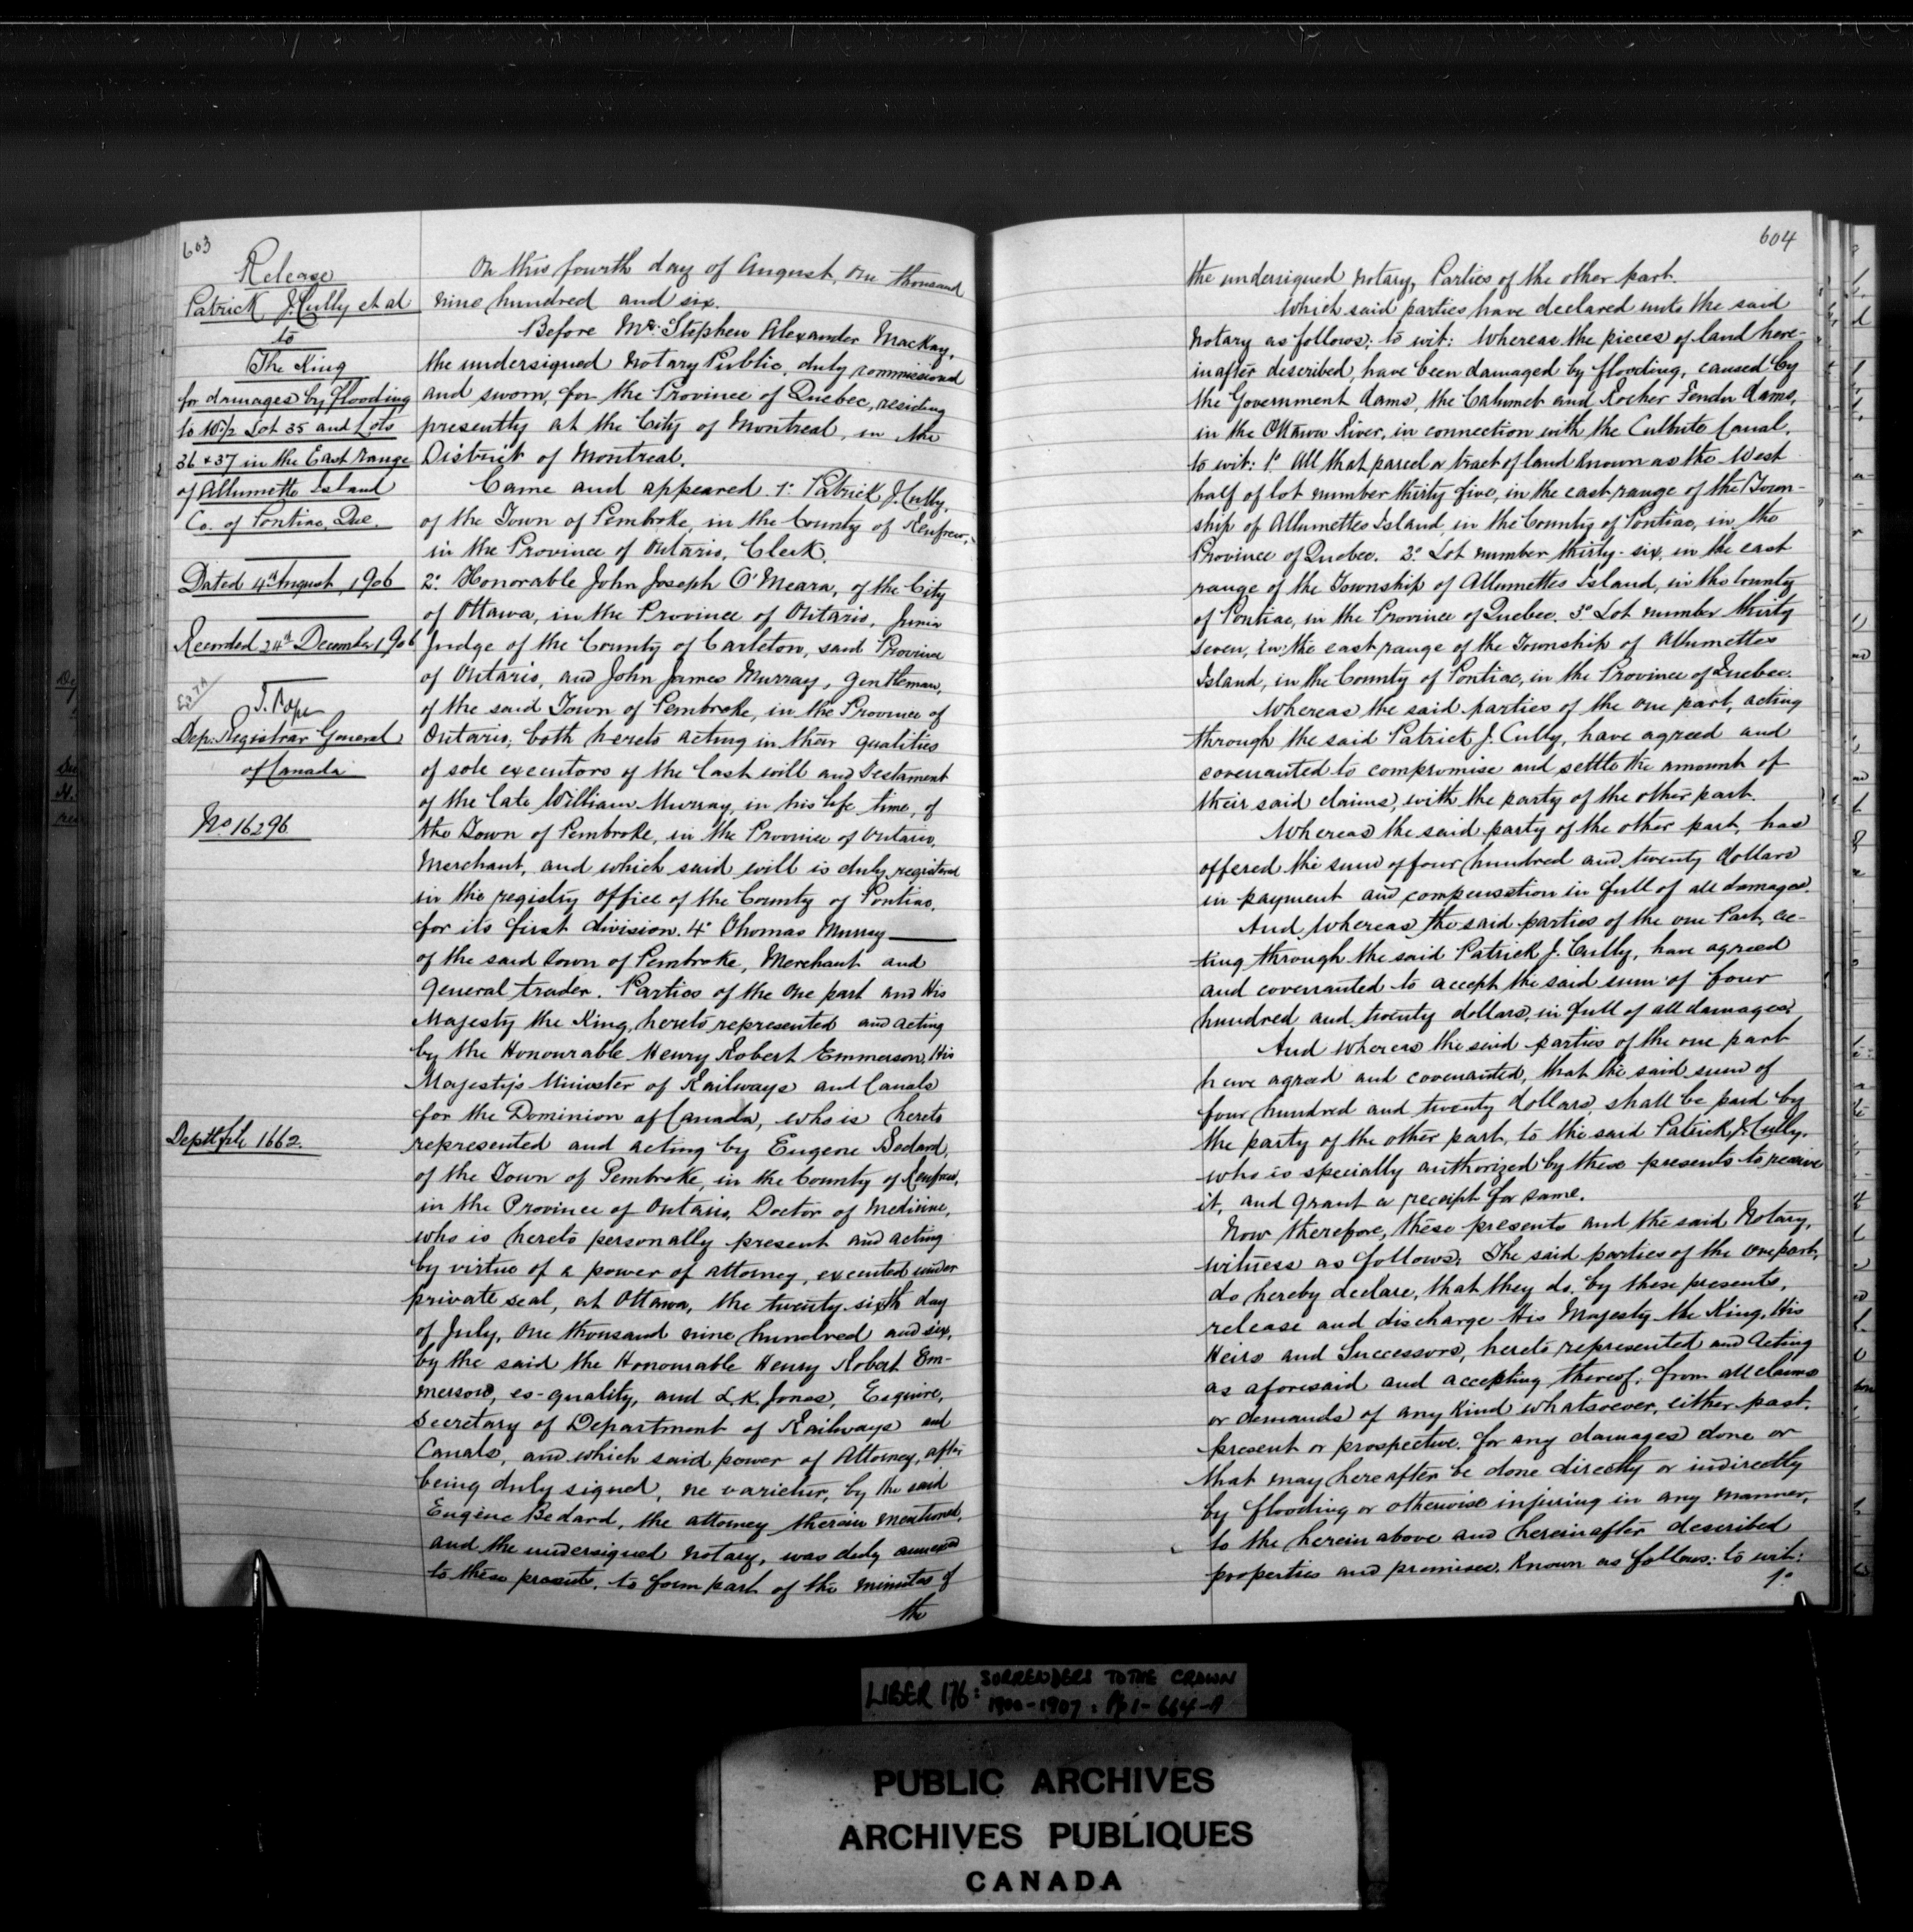 603
Release
Patrick J. Cully et al
to
The King
for damages by flooding
to W½ Lot 35 and Lots
36 & 37 in the East range
of Allumette Island
Co. of Pontiac, Que.
Dated 4th August, 1906
Recorded 24th December 1906
Dep. Registrar General
of Canada
No 16296
Deptl file 1662.
On this fourth day of August, one thousand
nine hundred and six.
Before Mr. Stephen Alexander Mackay,
the undersigned Notary Public, duly commissioned
and sworn, for the Province of Quebec, residing
presently at the City of Montreal, in the
District of Montreal.
Came and appeared 1º Patrick J. Cully,
of the Town of Pembroke, in the County of Renfrew,
in the Province of Ontario, Clerk.
2º Honorable John Joseph O'Meara, of the City
of Ottawa, in the Province of Ontario, Junior
Judge of the County of Carleton, said Province
of Ontario, and John James Murray, Gentleman,
of the said Town of Pembroke, in the Province of
Ontario, both hereto acting in their qualities
of sole executors of the last will and Testament
of the late William Murray, in his life time, of
the Town of Pembroke, in the Province of Ontario,
Merchant, and which said will is duly registered
in the registry office of the County of Pontiac,
for its first division. 4º Thomas Murray
of the said Town of Pembroke, Merchant and
General trader. Parties of the one part and His
Majesty the King, hereto represented and acting
by the Honourable Henry Robert Emmerson, His
Majesty's Minister of Railways and Canals
for the Dominion of Canada, who is hereto
represented and acting by Eugene Bedard,
of the Town of Pembroke, in the County of Renfrew,
in the Province of Ontario, Doctor of Medicine,
who is hereto personally present and acting
by virtue of a power of attorney, executed under
private seal, at Ottawa, the twenty sixth day
of July, one thousand nine hundred and six,
by the said the Honourable Henry Robert Em-
merson, es-quality, and L. K. Jones, Esquire,
Secretary of Department of Railways and
Canals, and which said power of Attorney, after
being duly signed, ne varietur, by the said
Eugène Bedard, the attorney therein mentioned,
and the undersigned Notary, was duly annexed
to these presents, to form part of the minutes of
the
604
the undersigned Notary, Parties of the other part.
Which said parties have declared unto the said
Notary as follows; to wit: Whereas the pieces of land here-
inafter described, have been damaged by flooding, caused by
the Government dams, the Calumet and Rocher Fendu dams,
in the Ottawa River, in connection with the Culbute Canal,
to wit: 1º All that parcel or tract of land known as the West
half of lot number thirty five, in the east range of the Town-
ship of Allumettes Island, in the County of Pontiac, in the
Province of Quebec. 2º Lot number thirty-six, in the east
range of the Township of Allumettes Island, in the County
of Pontiac, in the Province of Quebec. 3º Lot number thirty
seven, in the east range of the Township of Allumettes
Island, in the County of Pontiac, in the Province of Quebec.
Whereas the said parties of the one part, acting
through the said Patrick J. Cully, have agreed and
covenanted to compromise and settle the amount of
their said claims, with the party of the other part.
Whereas the said party of the other part, has
offered the sum of four hundred and twenty dollars
in payment and compensation in full of all damages.
And Whereas the said parties of the one Part, ac-
ting through the said Patrick J. Cully, have agreed
and covenanted to accept the said sum of four
hundred and twenty dollars, in full of all damages.
And whereas the said parties of the one part
have agreed and covenanted, that the said sum of
four hundred and twenty dollars, shall be paid by
the party of the other part, to the said Patrick J. Cully,
who is specially authorized by these presents to receive
it, and grant a receipt for same.
Now therefore, these presents and the said Notary,
witness as follows: The said parties of the one part,
do hereby declare, that they do, by these presents,
release and discharge His Majesty the King, His
Heirs and Successors, hereto represented and acting
as aforesaid and accepting thereof, from all claims
or demands of any kind whatsoever, either past,
present or prospective, for any damages done or
that may hereafter be done directly or indirectly
by flooding or otherwise injuring in any manner,
to the herein above and hereinafter described
properties and premises, known as follows: to wit:
1º
LIBER 176: SURRENDERS TO THE CROWN
1900-1907: Pp 1-664-A
PUBLIC ARCHIVES
ARCHIVES PUBLIQUES
CANADA